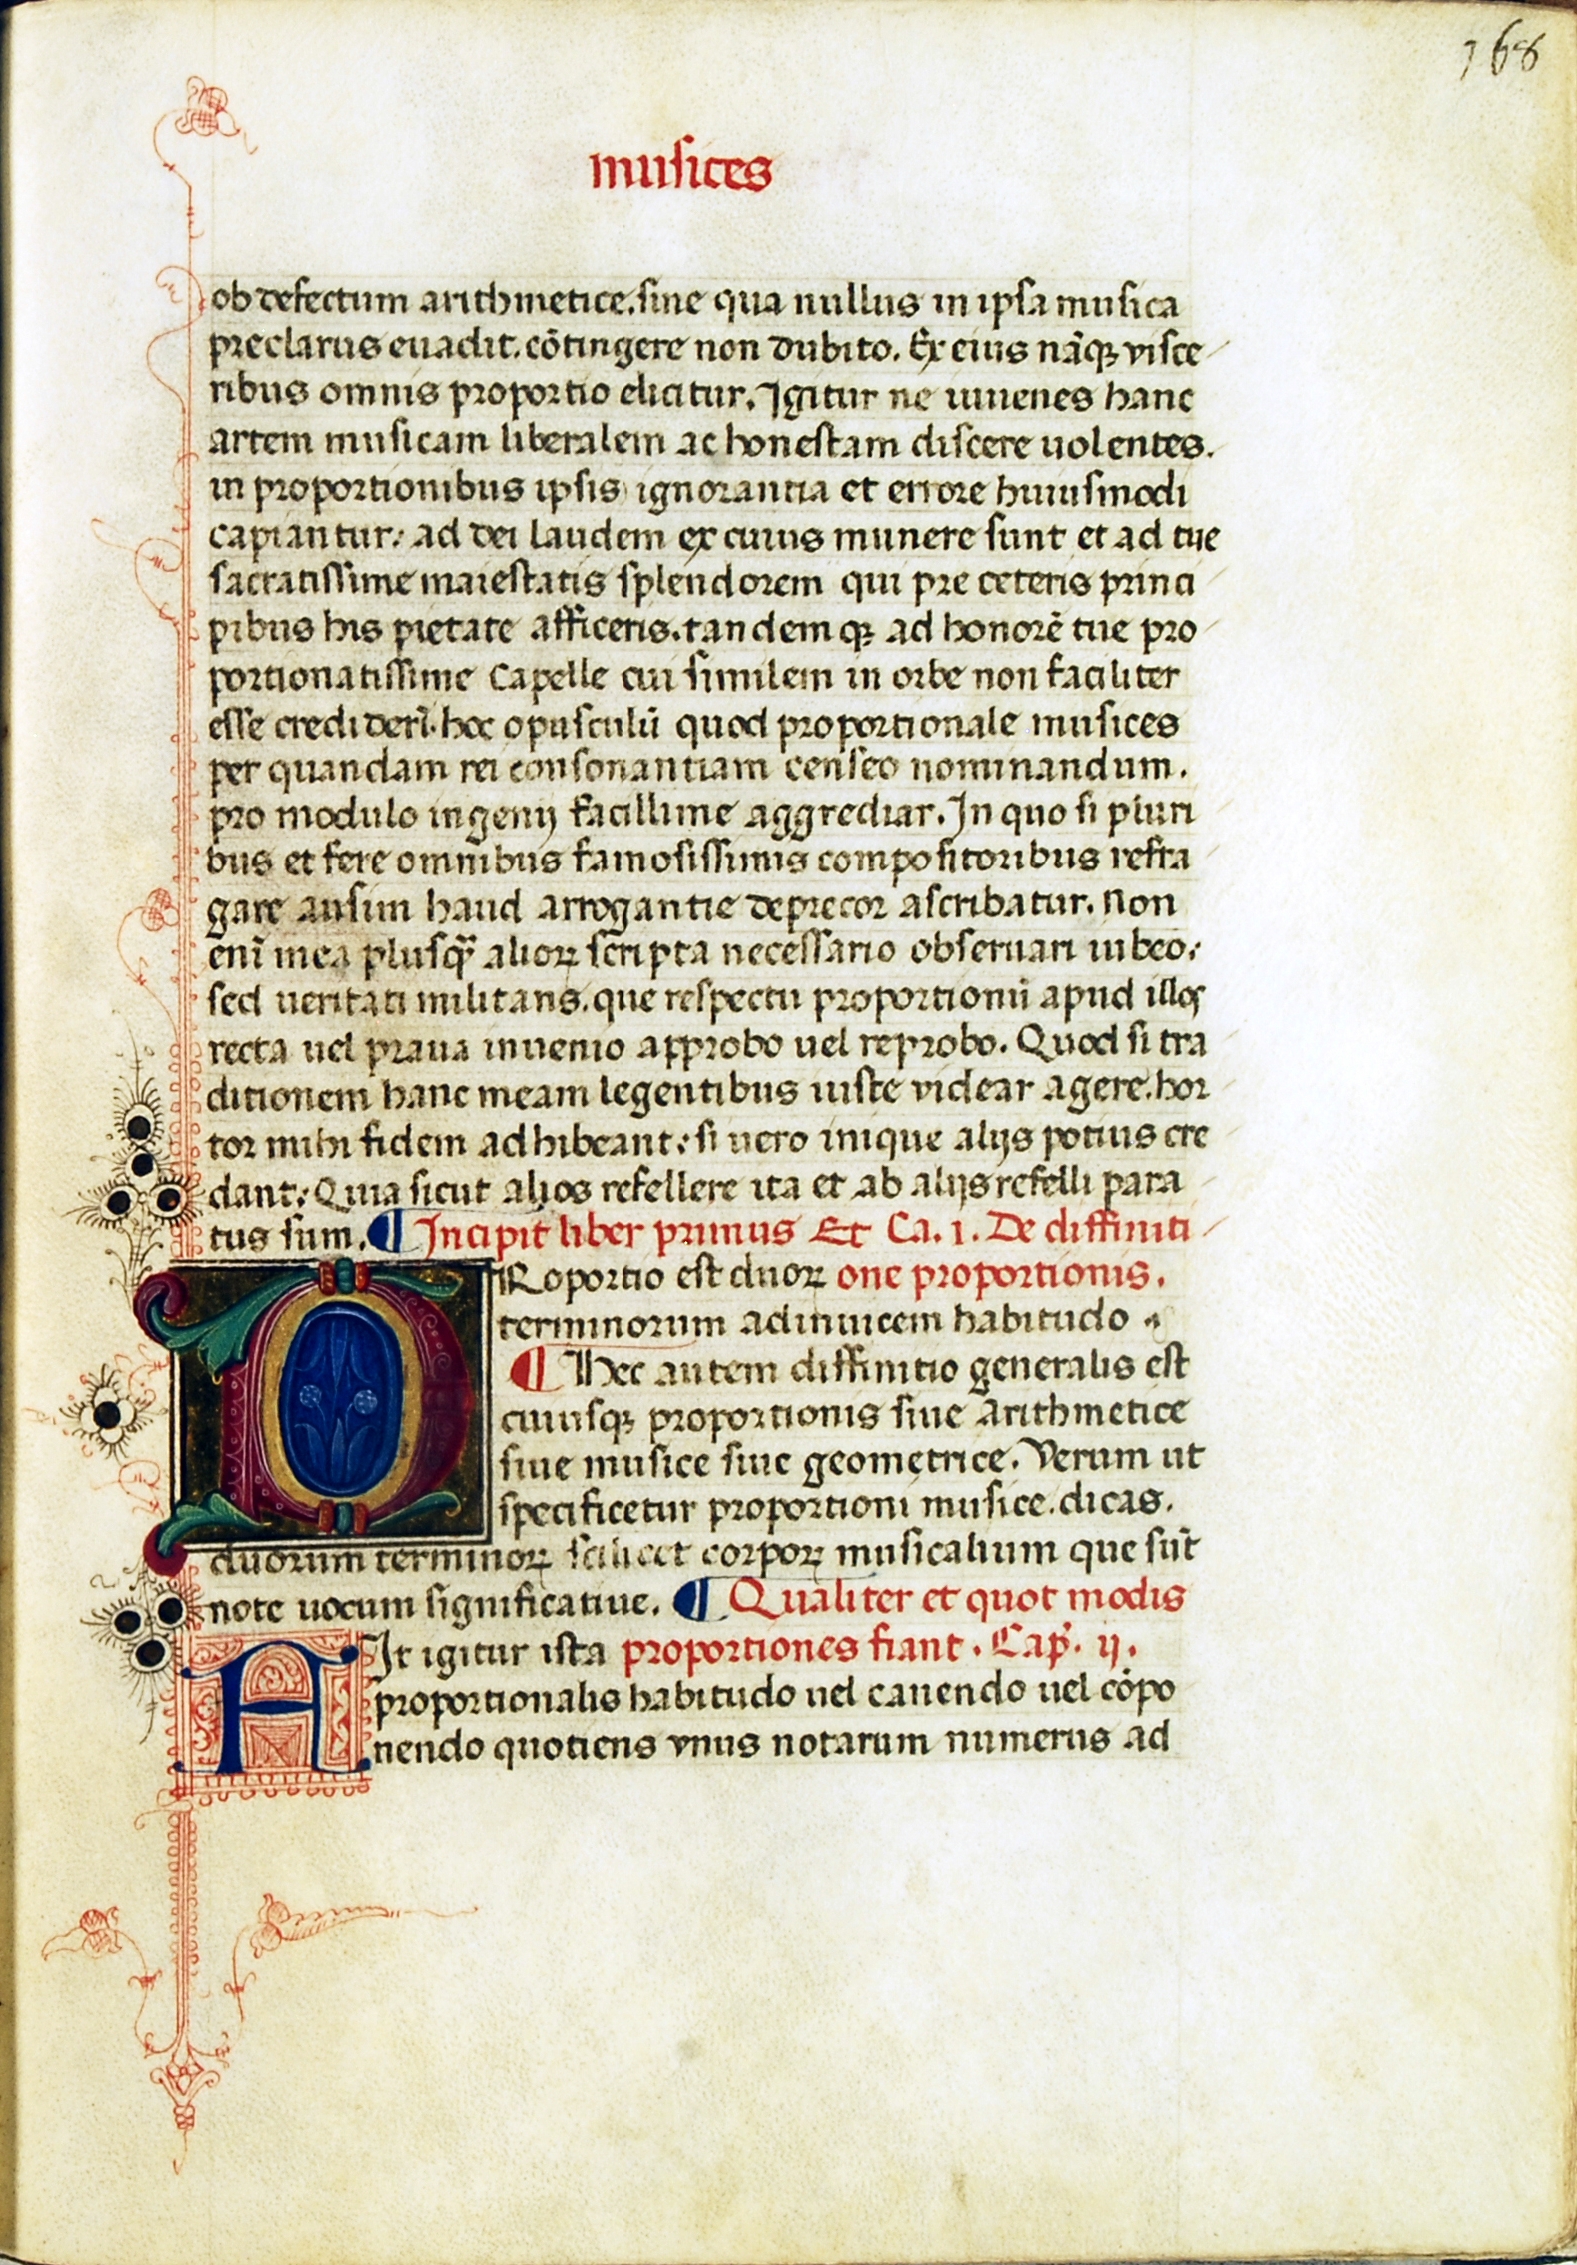 168
musices
ob defectum arithmetice. sine qua nullus in ipsa musica
preclarus euadit. cōtingere non dubito. Ex eius nāqꝫ visce
ribus omnis proportio elicitur. Igitur ne iuuenes hanc
artem musicam liberalem ac honestam discere uolentes.
in proportionibus ipsis ignorantia et errore huiusmodi
capiantur: ad dei laudem ex cuius munere sunt et ad tue
sacratissime maiestatis splendorem qui pre ceteris princi
pibus his pietate afficeris. tandemqꝫ ad honorē tue pro
portionatissime Capelle cui similem in orbe non faciliter
esse crediderī. hoc opusculū quod proportionale musices
per quandam rei consonantiam censeo nominandum.
pro modulo ingenij facillime aggrediar. In quo si pluri
bus et fere omnibus famosissimis compositoribus refra
gare ausim haud arrogantie deprecor ascribatur. Non
enī mea plusqᷓ alioꝝ scripta necessario obseruari iubeo:
sed ueritati militans. que respectu proportionū apud illos
recta uel praua inuenio approbo uel reprobo. Quod si tra
ditionem hanc meam legentibus iuste videar agere. hor
tor mihi fidem adhibeant: si uero inique alijs potius cre
dant: Quia sicut alios refellere ita et ab alijs refelli para
tus sum. ¶ Incipit liber primus Et Ca. i. De diffiniti
PRoportio est duoꝝ one proportionis.
terminorum adinuicem habitudo
¶ Hec autem diffinitio generalis est
cuiusqꝫ proportionis siue arithmetice
siue musice siue geometrice. Verum ut
specificetur proportioni musice. dicas.
duorum terminoꝝ scilicet corpoꝝ musicalium que sūt
note uocum significatiue. ¶ Qualiter et quot modis
FIt igitur ista proportiones fiant. Cap̄. ij.
proportionalis habitudo uel canendo uel cōpo
nendo quotiens vnus notarum numerus ad